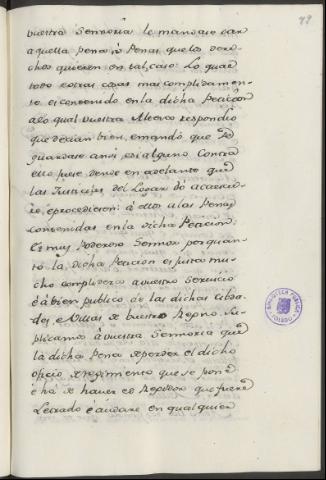 79
vuestra Señoria le mandase dar
aquella pena, ò Penas que los dere-
chos quieren en tal caso: Lo qual
todo è otras cosas mas cumplidamen-
te es contenido en la dicha Peticion
à lo qual vuestra Alteza respondio
que decian bien, è mandò que se
guardase ansi, è si alguno contra
ello fuese dende en adelante que
las Justicias del Logar dó acaecie-
re, è procediesen à ellos à las Penas
contenidas en la dicha Peticion.
Es muy Poderoso Señor por quan-
to la dicha Peticion es justa mu-
cho complidera à vuestro servicio
è à bien publico de las dichas Cibda-
des, è Villas de vuestro Regno. Su-
plicamos à vuestra Señoria que
la dicha Pena de perder el dicho
oficio de regimiento que se pon
e ha de haver el Regidor que fuere
Letrado è audare en qualquier
BIBLIOTECA PUBLICA
TOLEDO